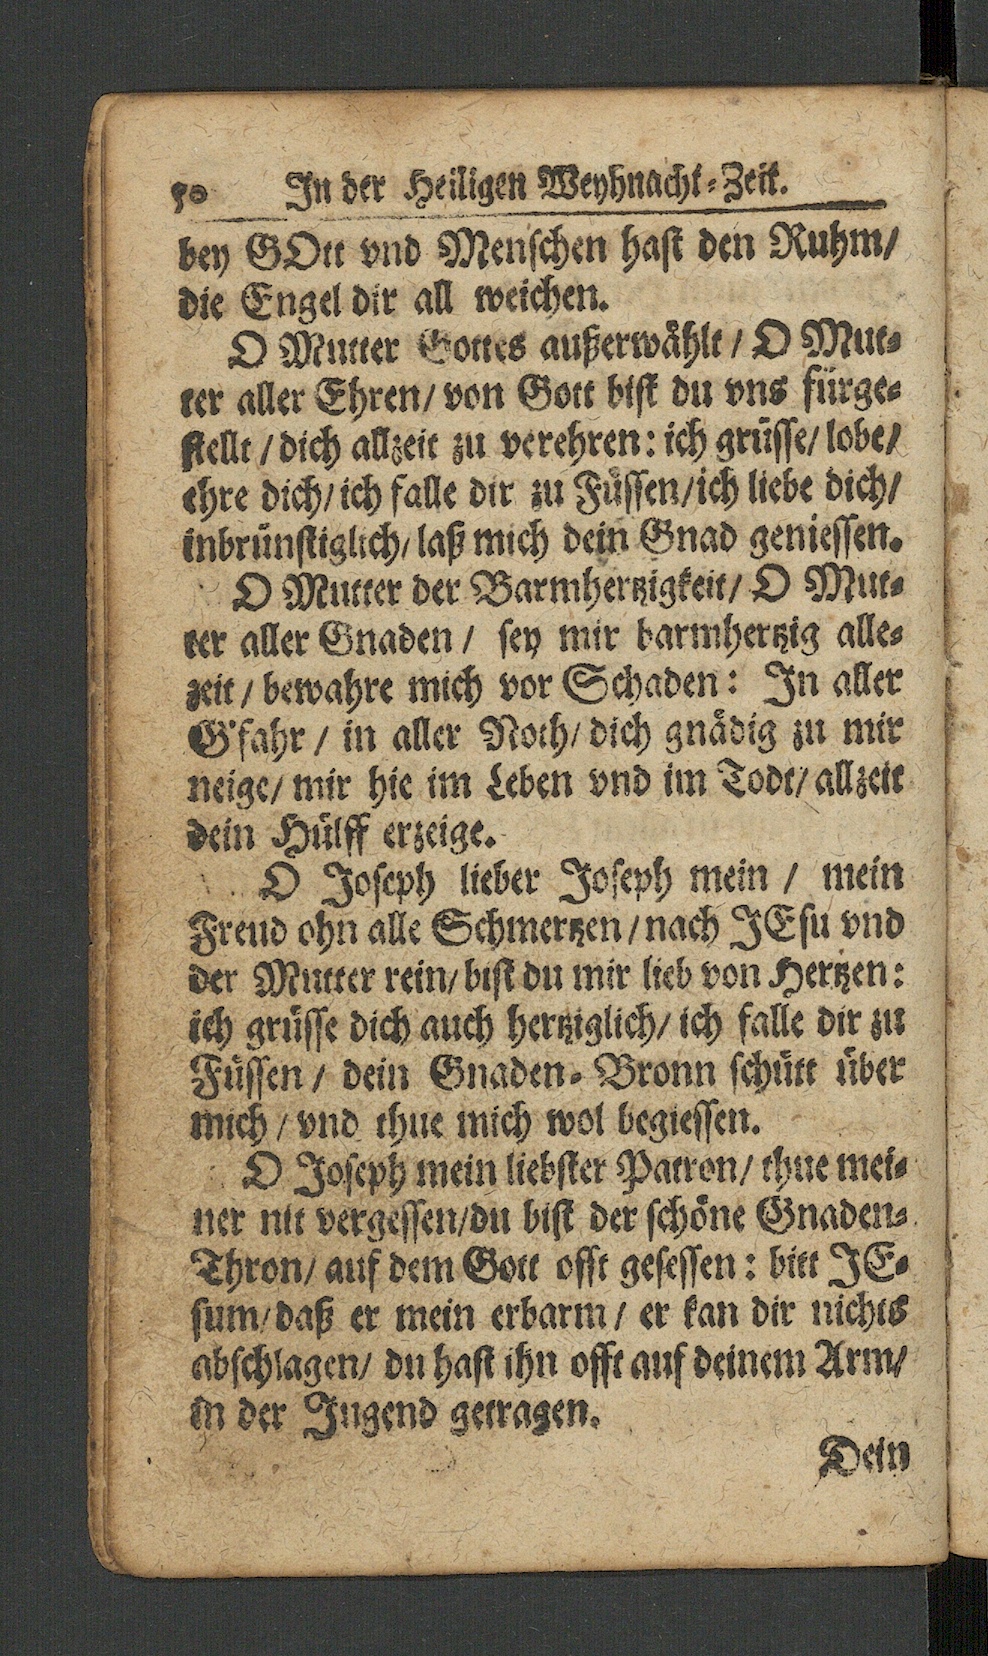 50 In der Heiligen Weyhnacht-Zeit.
bey GOtt vnd Menschen hast den Ruhm/
die Engel dir all weichen.
O Mutter Gottes außerwählt / O Mut-
ter aller Ehren/ von Gott bist du vns fürge-
stellt / dich allzeit zu verehren: ich grüsse/ lobe/
ehre dich/ ich falle dir zu Füssen/ ich liebe dich/
inbrünstiglich/ laß mich dein Gnad geniessen.
O Mutter der Barmhertzigkeit/ O Mut-
ter aller Gnaden / sey mir barmhertzig alle-
zeit / bewahre mich vor Schaden: In aller
G'fahr / in aller Noth/ dich gnädig zu mir
neige/ mir hie im Leben vnd im Todt/ allzeit
dein Hülff erzeige.
O Joseph lieber Joseph mein / mein
Freud ohn alle Schmertzen / nach JEsu vnd
der Mutter rein/ bist du mir lieb von Hertzen:
ich grüsse dich auch hertziglich/ ich falle dir zu
Füssen / dein Gnaden-Bronn schütt über
mich / vnd thue mich wol begiessen.
O Joseph mein liebster Patron/ thue mei-
ner nit vergessen/du bist der schöne Gnaden-
Thron/ auf dem Gott offt gesessen: bitt JE-
sum/ daß er mein erbarm / er kan dir nichts
abschlagen/ du hast ihn offt auf deinem Arm/
in der Jugend getragen.
Dein